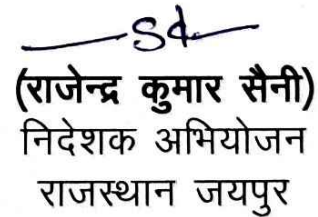 Sd
(राजेन्द्र कुमार सैनी)
निदेशक अभियोजन
राजस्थान जयपुर